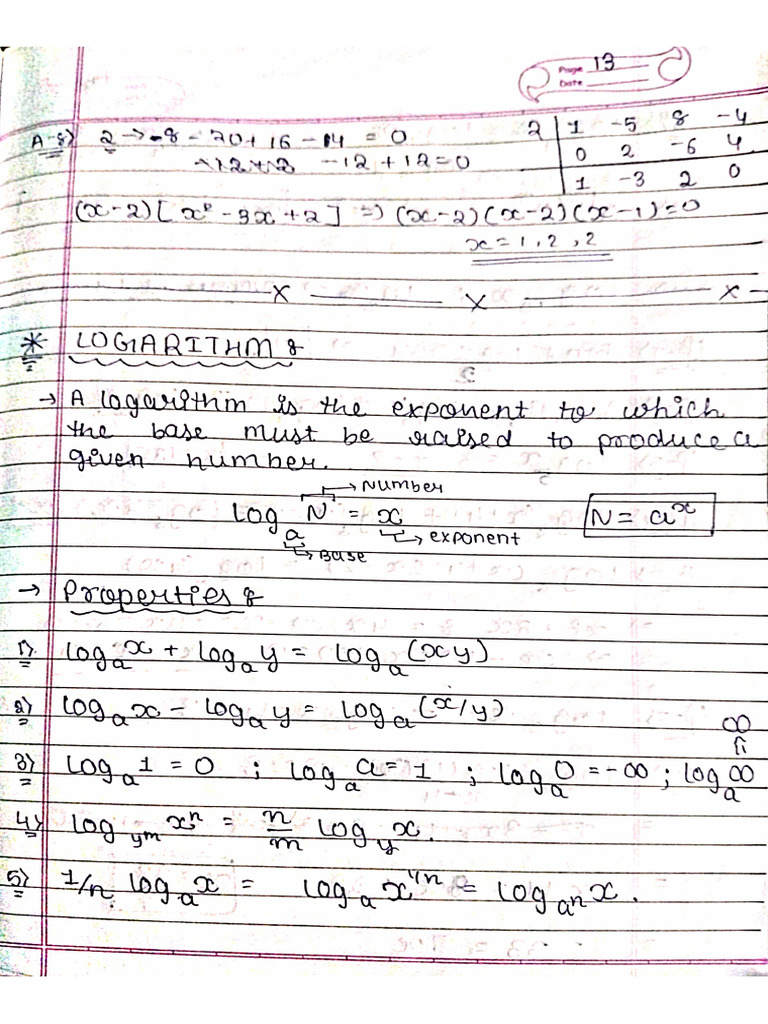 Page 13
Date
A-8) 2 → -8 - 20 + 16 - 14 = 0
-12 + 12 = 0
2 | 1 -5 8 -4
0 2 -6 4
1 -3 2 0
(x-2)[x² - 3x + 2] => (x-2)(x-2)(x-1) = 0
x = 1, 2, 2
x x x
* LOGARITHM :
→ A logarithm is the exponent to which
the base must be raised to produce a
given number.
→ Number
logₐ N = x N = aˣ
→ exponent
→ Base
→ Properties :
1) logₐ x + logₐ y = logₐ (xy)
2) logₐ x - logₐ y = logₐ (x/y)
∞
=
3) logₐ 1 = 0 ; logₐ a = 1 ; logₐ 0 = -∞ ; logₐ ∞
4) log_{y^m} xⁿ = n/m log_y x.
5) 1/n logₐ x = logₐ x^{1/n} = log_{a^n} x.